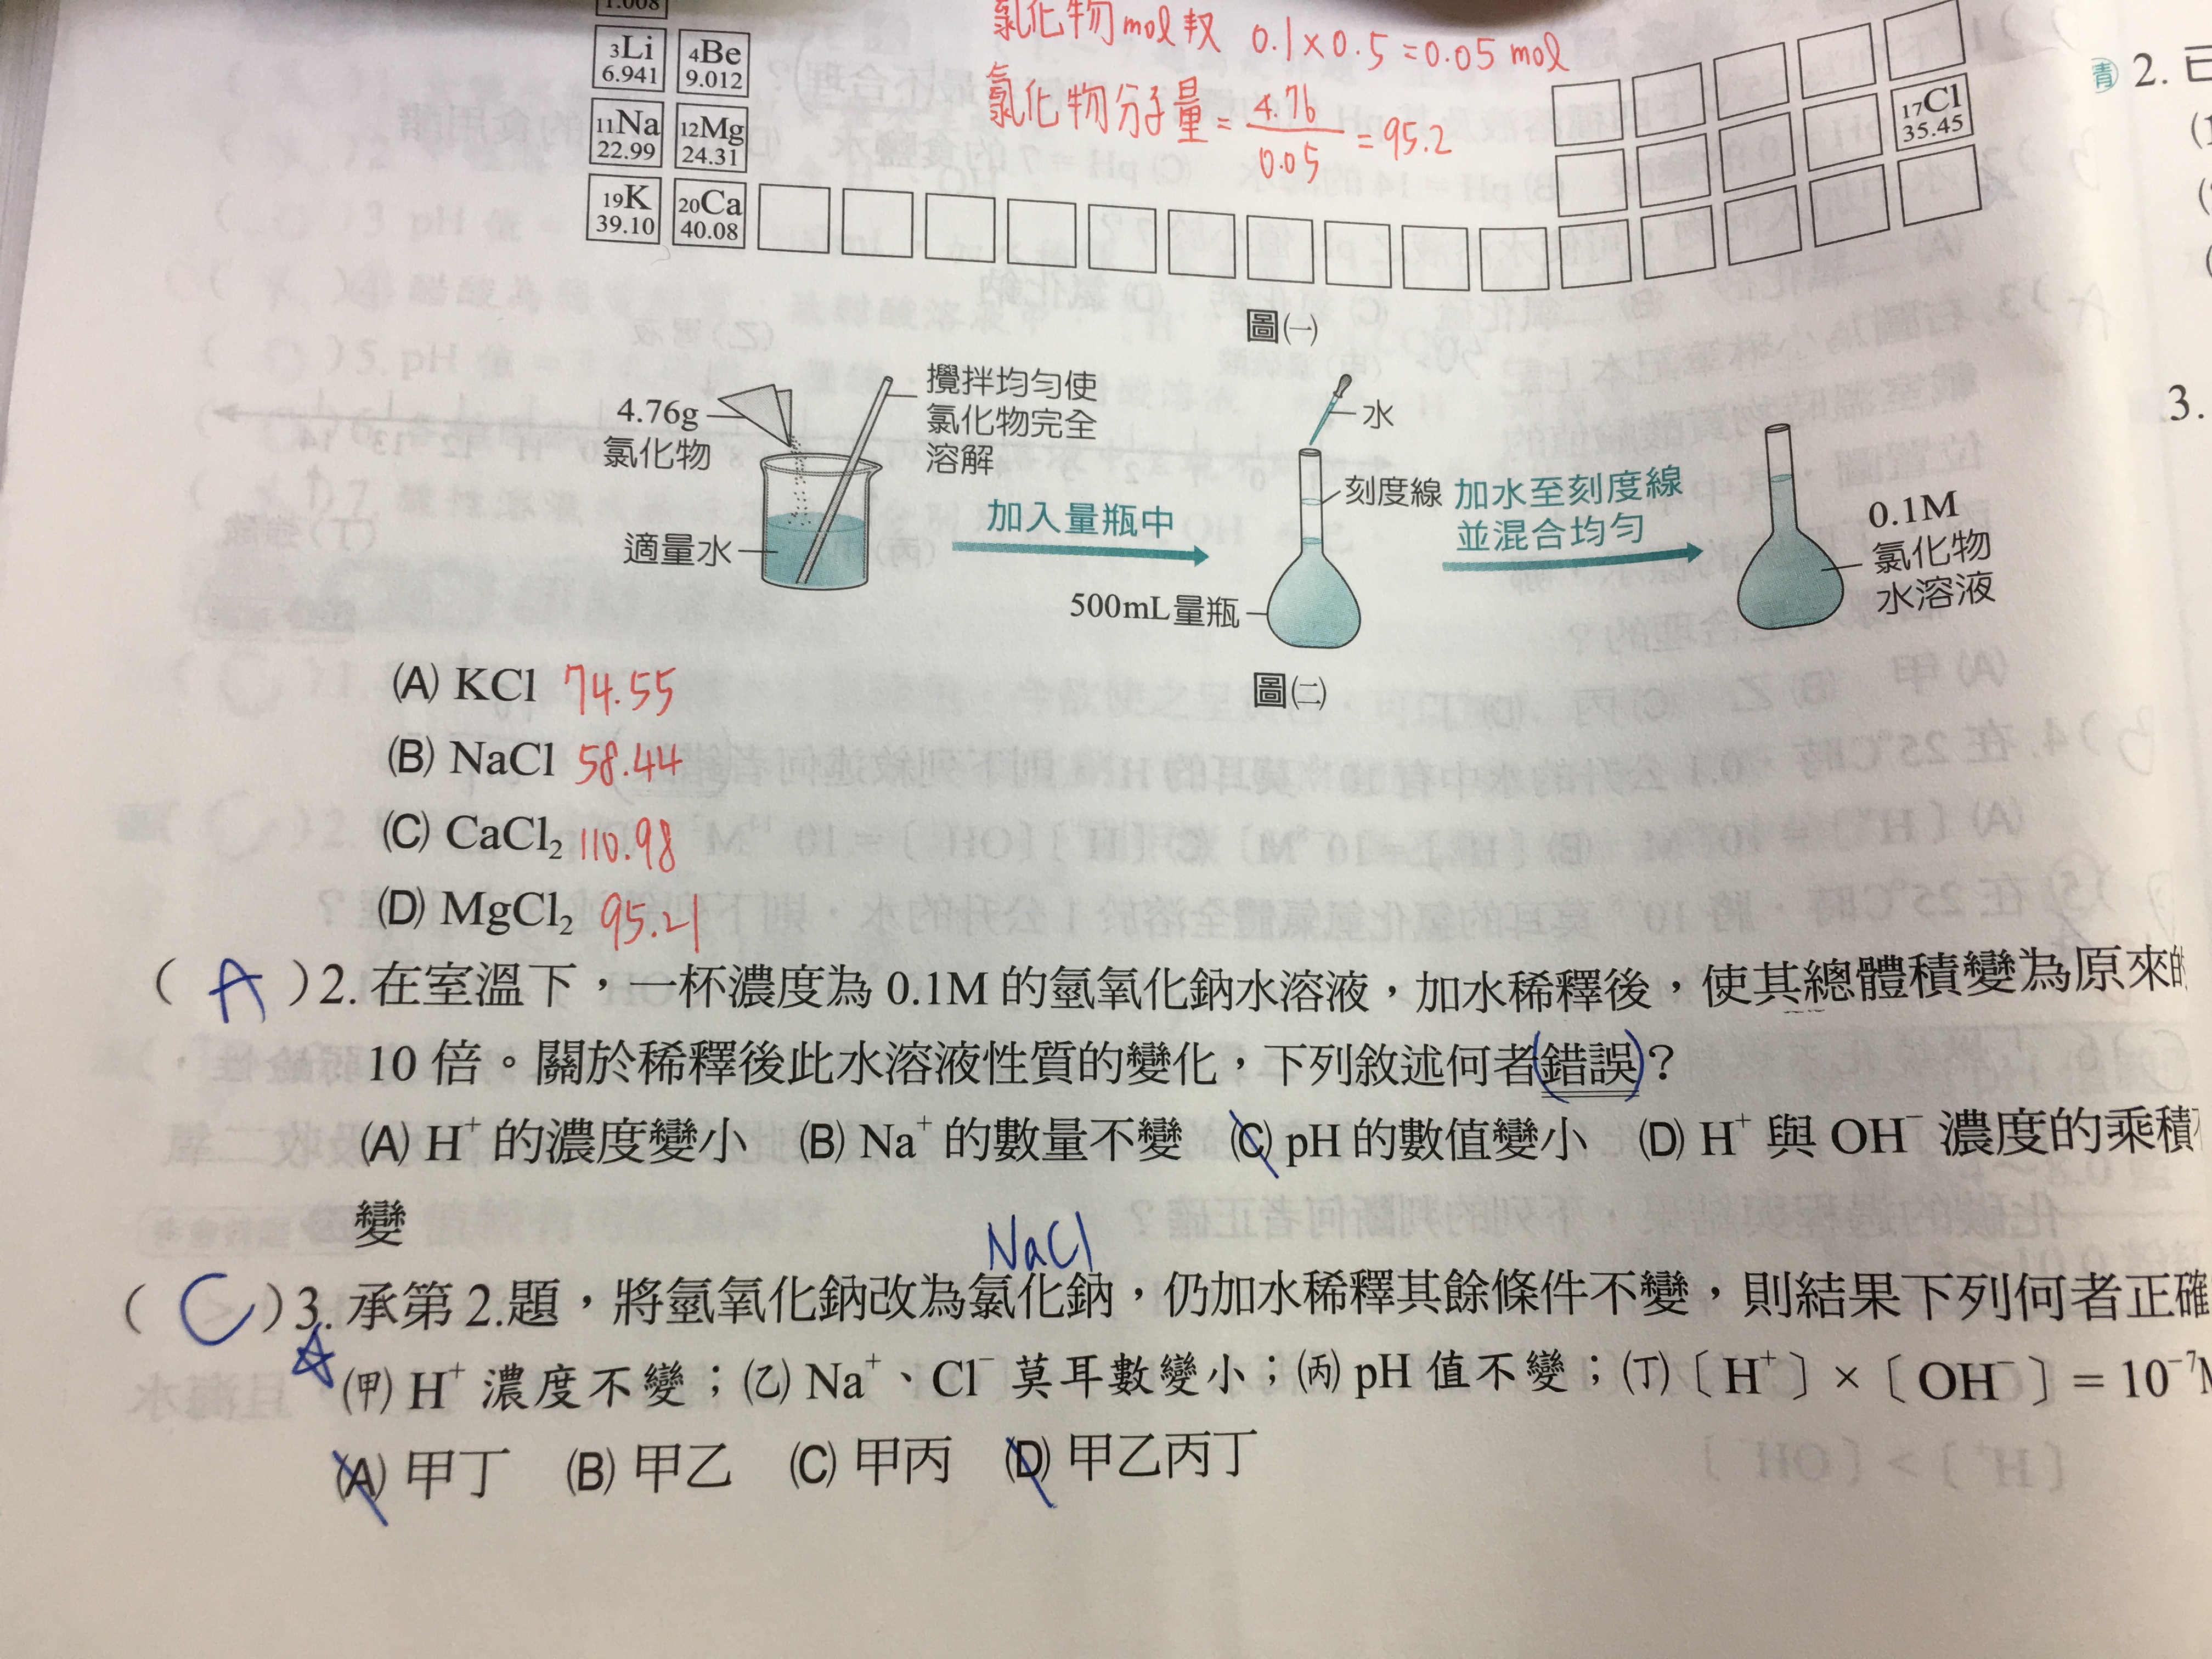 1.008
氯化物mol數 0.1×0.5=0.05 mol
3Li 4Be
6.941 9.012
氯化物分子量= 4.76/0.05 = 95.2
11Na 12Mg
22.99 24.31
17Cl
35.45
19K 20Ca
39.10 40.08
圖㈠
4.76g
氯化物
攪拌均勻使
氯化物完全
溶解
適量水
加入量瓶中
水
刻度線
500mL量瓶
加水至刻度線
並混合均勻
0.1M
氯化物
水溶液
圖㈡
(A) KCl 74.55
(B) NaCl 58.44
(C) CaCl₂ 110.98
(D) MgCl₂ 95.21
( A )2. 在室溫下，一杯濃度為 0.1M 的氫氧化鈉水溶液，加水稀釋後，使其總體積變為原來的
10 倍。關於稀釋後此水溶液性質的變化，下列敘述何者(錯誤)？
(A) H⁺ 的濃度變小 (B) Na⁺ 的數量不變 (C) pH 的數值變小 (D) H⁺ 與 OH⁻ 濃度的乘積
變
NaCl
( C )3. 承第 2.題，將氫氧化鈉改為氯化鈉，仍加水稀釋其餘條件不變，則結果下列何者正確
(甲) H⁺ 濃度不變；(乙) Na⁺、Cl⁻ 莫耳數變小；(丙) pH 值不變；(丁)〔H⁺〕×〔OH⁻〕= 10⁻⁷
(A) 甲丁 (B) 甲乙 (C) 甲丙 (D) 甲乙丙丁
青 2.
3.